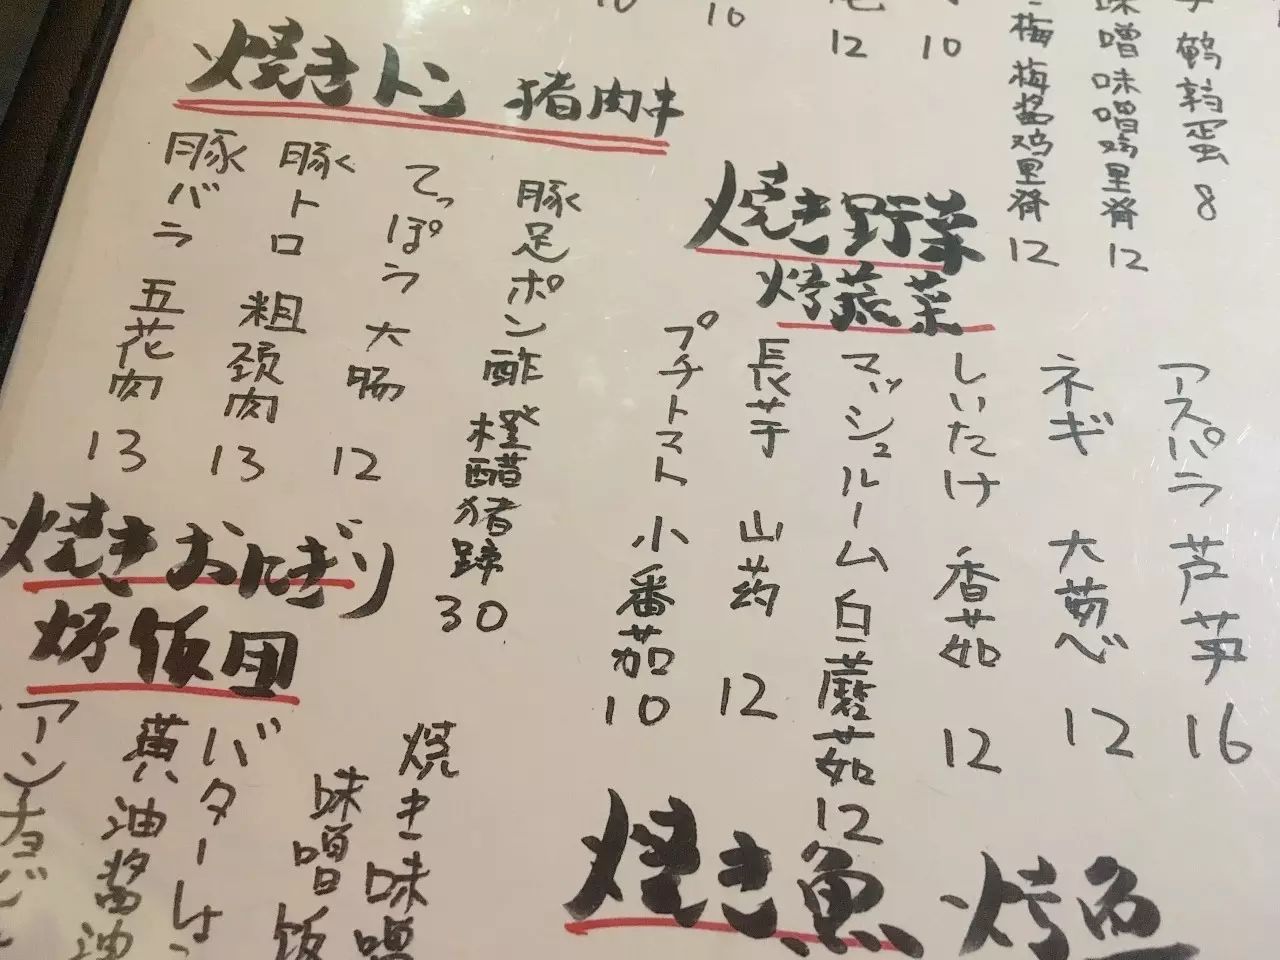 10
10
12
10
梅 梅醤鸡里脊 12
味噌 味噌鸡里脊 12
鹌鹑蛋 8
焼きトン 猪肉串
豚バラ 五花肉 13
豚トロ 粗颈肉 13
てっぽう 大肠 12
豚足ポン酢 橙醋猪蹄 30
焼き野菜
烤蔬菜
プチトマト 小番茄 10
長芋 山药 12
マッシュルーム 白蘑菇 12
しいたけ 香菇 12
ネギ 大葱 12
アスパラ 芦笋 16
焼きおにぎり
烤饭团
アンチョビ
バターしょ
黄油酱油
焼き味噌
味噌饭
焼き魚 烤鱼